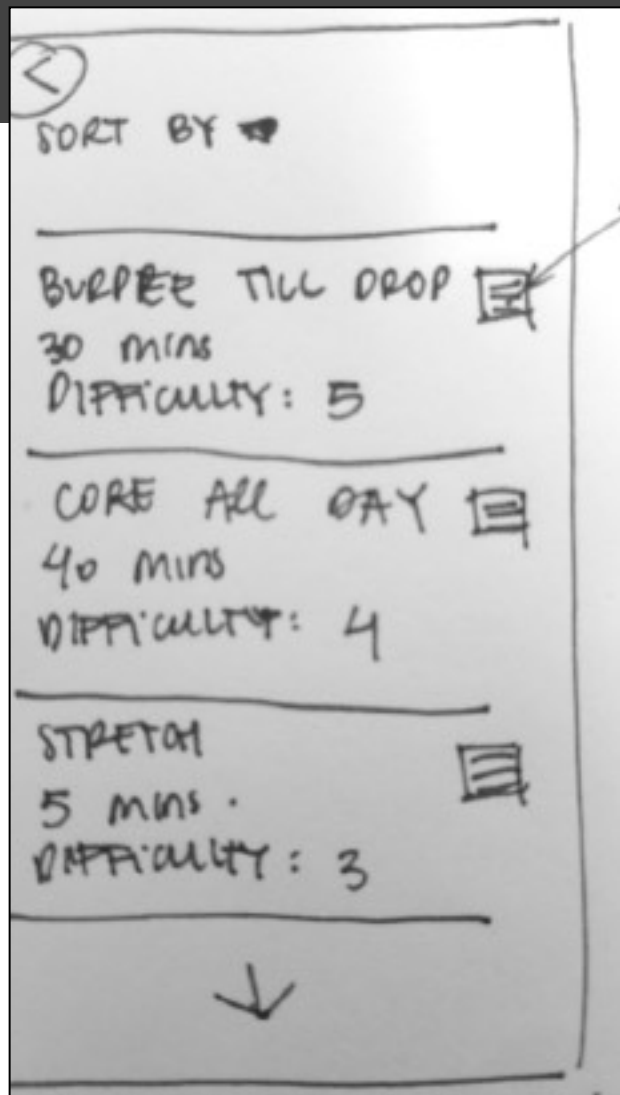 <
SORT BY
BURPEE TILL DROP
30 mins
DIFFICULTY: 5
CORE ALL DAY
40 mins
DIFFICULTY: 4
STRETCH
5 mins.
DIFFICULTY: 3